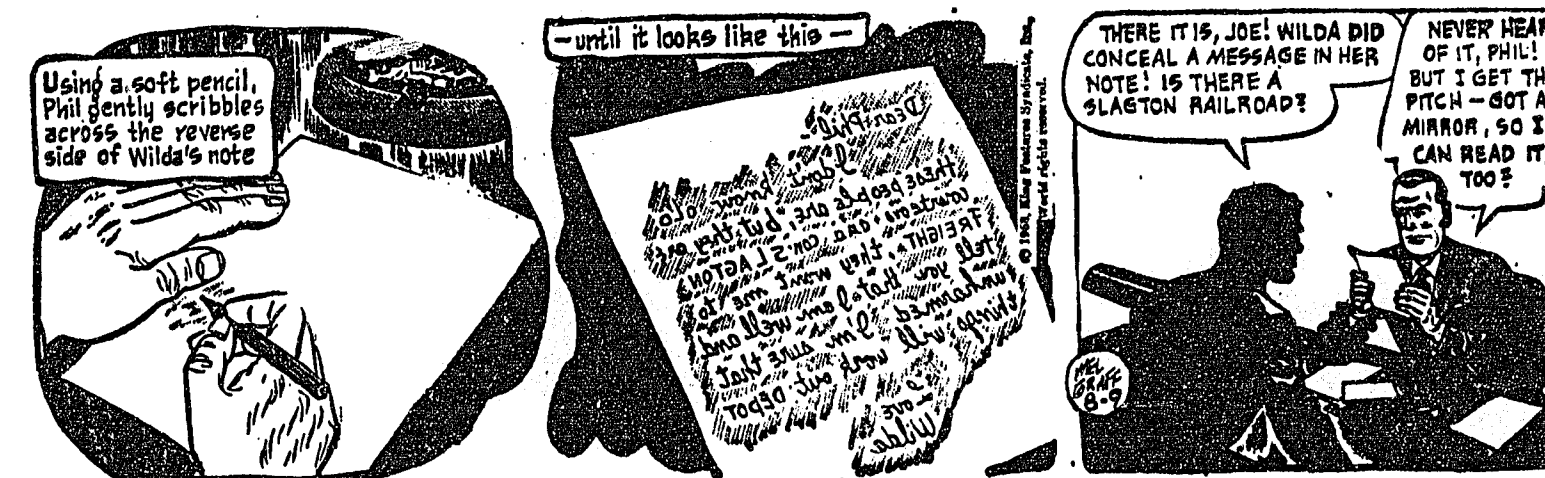 Using a soft pencil,
Phil gently scribbles
across the reverse
side of Wilda's note
—until it looks like this—
Dear Phil -
I don't know
THESE people are, but they are
courteous and con. SLAGTON
FREIGHT, they want me to
tell you that I am well and
unharmed I'm sure that
things will work out DEPOT
Love
Wilda
© King Features Syndicate, Inc.,
World rights reserved.
THERE IT IS, JOE! WILDA DID
CONCEAL A MESSAGE IN HER
NOTE! IS THERE A
SLAGTON RAILROAD?
NEVER HEAR
OF IT, PHIL!
BUT I GET TH
PITCH — GOT A
MIRROR, SO I
CAN READ IT
TOO?
MEL
GRAFF
8-9